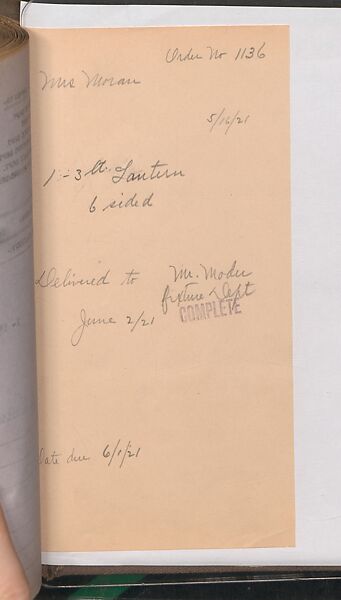 Order No 1136
Mrs Moran
5/16/21
1 - 3 lt. Lantern
6 sided
Delivered to Mr. Moder
fixture Dept
COMPLETE
June 2/21
Date due 6/1/21